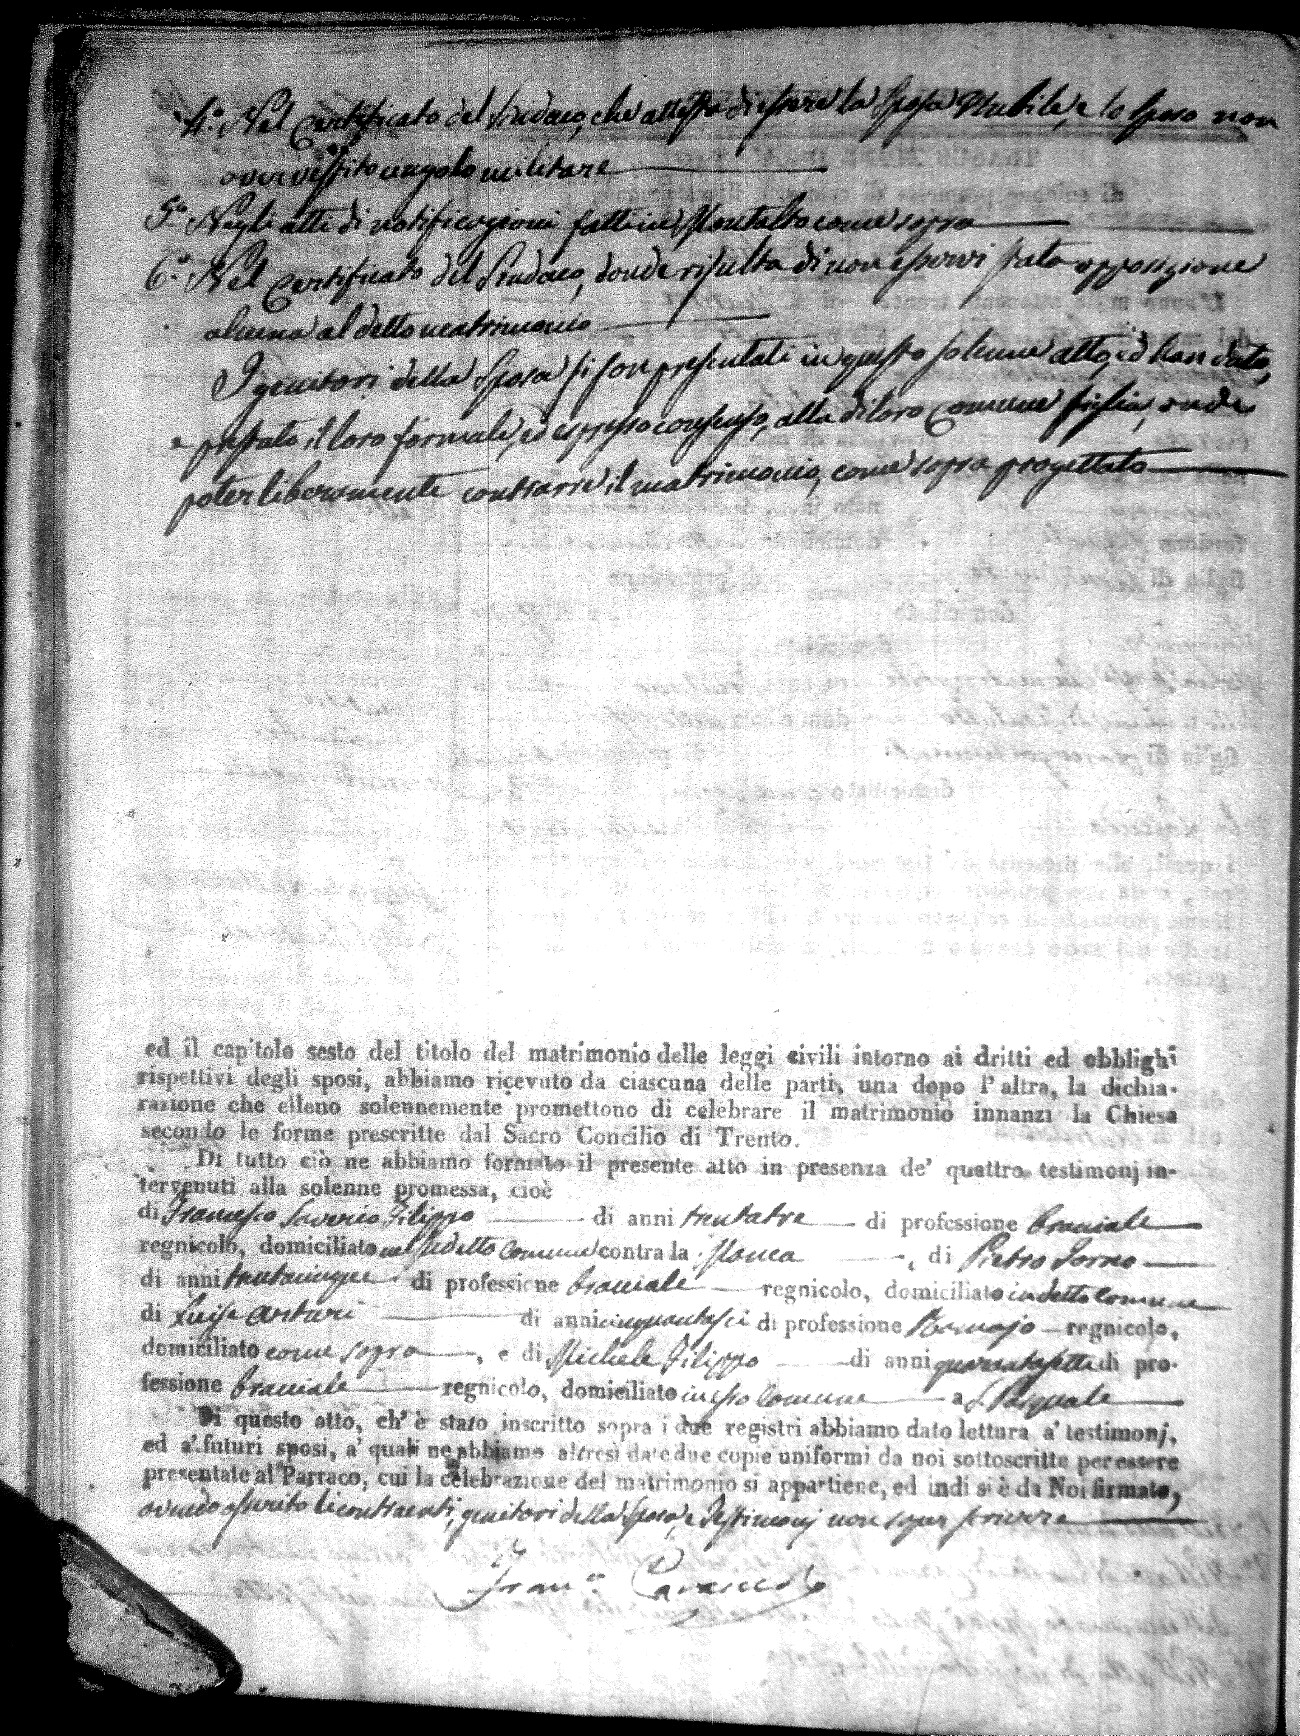 4.° Nel Certificato del Sindaco, che attesta di essere la Sposa Nubile, e lo Sposo non
aver vestito cingolo militare
5.° Negli atti di notificazioni fatti in Montalto come sopra
6.° Nel Certificato del Sindaco, donde risulta di non esservi stata opposizione
alcuna al detto matrimonio
I genitori della Sposa si son presentati in questo solenne atto, ed han dato,
e prestato il loro formale, ed espresso consenso, alla di loro comune figlia, onde
poter liberamente contrarre il matrimonio, come sopra progettato
ed il capitolo sesto del titolo del matrimonio delle leggi civili intorno ai dritti ed obblighi
rispettivi degli sposi, abbiamo ricevuto da ciascuna delle parti, una dopo l'altra, la dichia-
razione che elleno solennemente promettono di celebrare il matrimonio innanzi la Chiesa
secondo le forme prescritte dal Sacro Concilio di Trento.
Di tutto ciò ne abbiamo formato il presente atto in presenza de' quattro testimonj in-
tervenuti alla solenne promessa, cioè
di Francesco Saverio Filippo di anni trentatre di professione braciale
regnicolo, domiciliato nel sudetto Comune contra la Manca, di Pietro Sorno
di anni trentacinque di professione braciale regnicolo, domiciliato in detto Comune
di Luigi Arturi di anni cinquantasei di professione regnicolo,
domiciliato come sopra, e di Michele Filippo di anni quarantasette di pro-
fessione braciale regnicolo, domiciliato in esso Comune a S. Pasquale
Di questo atto, ch'è stato inscritto sopra i due registri abbiamo dato lettura a' testimonj,
ed a' futuri sposi, a' quali ne abbiamo altresì date due copie uniformi da noi sottoscritte per essere
presentate al Parraco, cui la celebrazione del matrimonio si appartiene, ed indi si è da Noi firmato,
avendo asserito li contraenti, genitori della Sposa, e Testimonj non saper scrivere
Fran.co